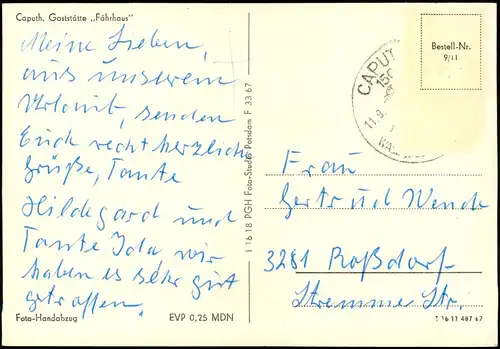 Caputh, Gaststätte „Fährhaus"
Meine Lieben,
aus unserem
Urlaub, senden
Euch recht herzliche
Grüße, Tante
Hildegard und
Tante Ida, wir
haben es sehr gut
getroffen.
Foto-Handabzug EVP 0,25 MDN
I 16 18 PGH Foto-Studio Potsdam F 33 67
CAPUT
150
11.9.
Bestell-Nr.
9/11
Frau
Gertrud Wende
3281 Roßdorf
Stremme Str.
I 16 11 487 67